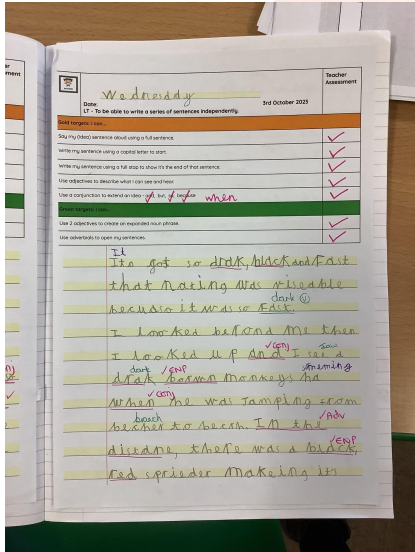 Wednesday
Teacher
Assessment
Date:
3rd October 2023
LT - To be able to write a series of sentences independently.
Gold targets: I can...
Say my (idea) sentence aloud using a full sentence.
Write my sentence using a capital letter to start.
Write my sentence using a full stop to show it's the end of that sentence.
Use adjectives to describe what I can see and hear.
Use a conjunction to extend an idea - and, but, because when
Green targets: I can...
Use 2 adjectives to create an expanded noun phrase.
Use adverbials to open my sentences.
It
got so drak, black and Fast
that nating was viseable
dark
becuase it was so Fast.
I looked befond me then
conj saw
I looked up and I see a
dark ENP
drak monkeys
conj
when he was jamping from
bench Adv
to In the
ENP
distane, there was a black,
red sprieder makeing its